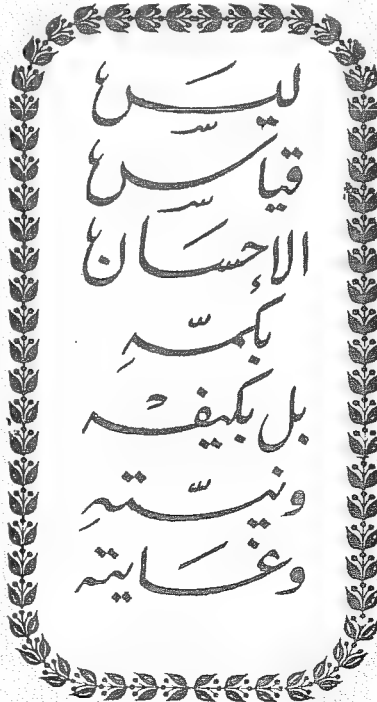 ليس
قياس
الإحسان
بكمّهِ
بل بكيفه
ونيّتهِ
وغايته